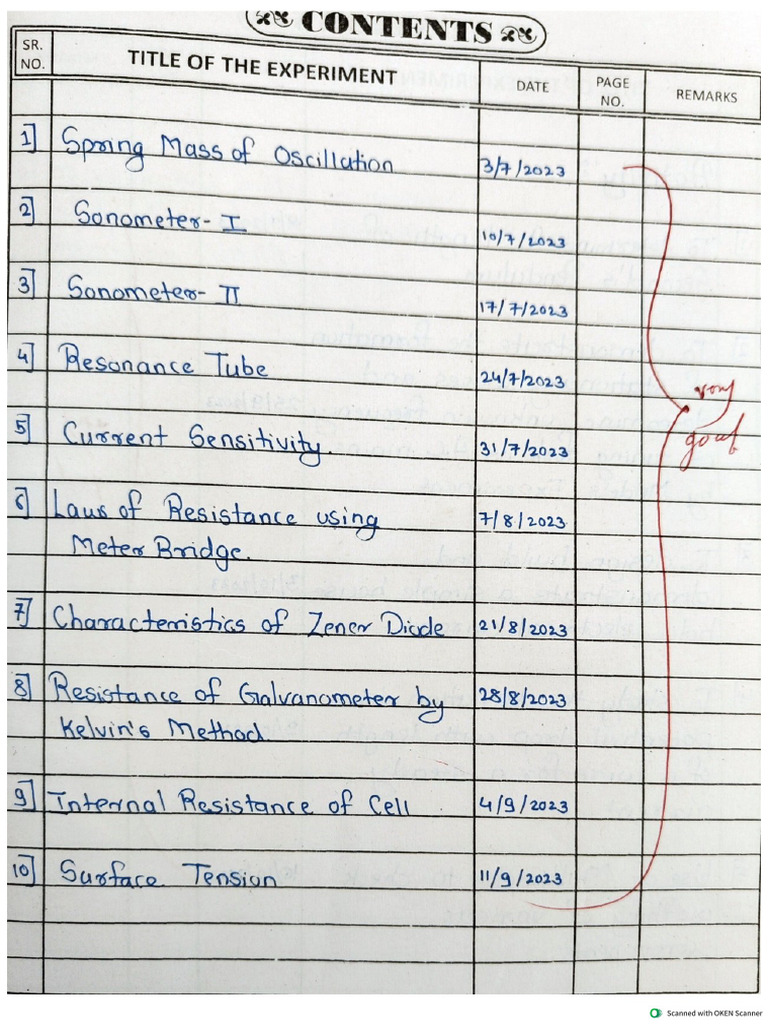 CONTENTS
SR. NO. TITLE OF THE EXPERIMENT DATE PAGE NO. REMARKS
1] Spring Mass of Oscillation 3/7/2023
2] Sonometer- I 10/7/2023
3] Sonometer- II 17/7/2023
4] Resonance Tube 24/7/2023
very
good
5] Current Sensitivity. 31/7/2023
6] Laws of Resistance using 7/8/2023
Meter Bridge.
7] Characteristics of Zener Diode 21/8/2023
8] Resistance of Galvanometer by 28/8/2023
Kelvin's Method
9] Internal Resistance of Cell 4/9/2023
10] Surface Tension 11/9/2023
Scanned with OKEN Scanner